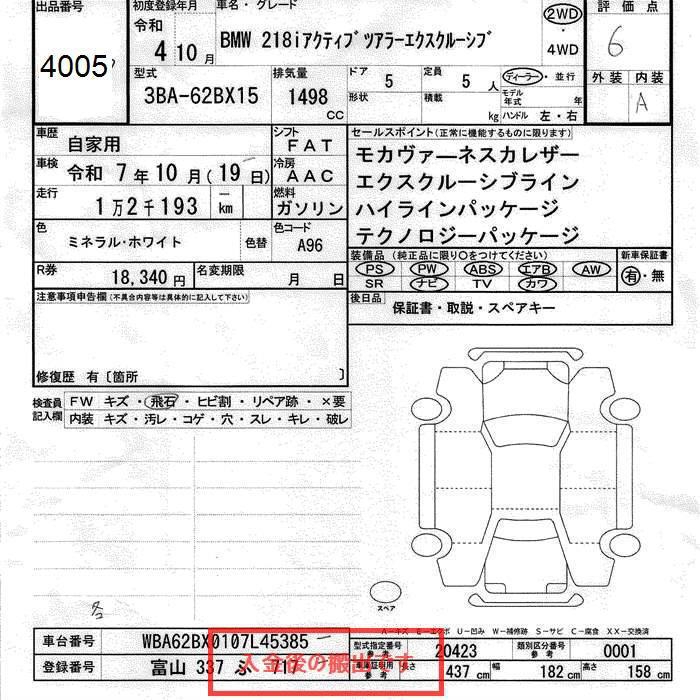 出品番号 初度登録年月 車名・グレード 評価点
4005
令和 4 10月
BMW 218iアクティブツアラーエクスクルーシブ
2WD ・ 4WD
6
型式 排気量 ドア 定員 ディーラー・並行 外装 内装
3BA-62BX15 1498 CC 5 5人
形状 積載 kg モデル年式 年 ハンドル 左・右
A
車歴 自家用
シフト FAT
セールスポイント(正常に機能するものに限ります)
車検 令和 7年10月(19日)
冷房 AAC
モカヴァーネスカレザー
エクスクルーシブライン
走行 1万2千193 km
燃料 ガソリン
ハイラインパッケージ
テクノロジーパッケージ
色 ミネラル・ホワイト 色替 色コード A96
装備品(純正品に限り〇をつけてください) 新車保証書
PS PW ABS エアB AW 有・無
SR ナビ TV カワ
R券 18,340円 名変期限 月 日
後日品 保証書・取説・スペアキー
注意事項申告欄(不具合内容等は具体的に記入して下さい)
修復歴 有〔箇所 〕
検査員記入欄 FW キズ・飛石・ヒビ割・リペア跡・×要
内装 キズ・汚レ・コゲ・穴・スレ・キレ・破レ
スペア
A－キズ E－エクボ U－凹み W－補修跡 S－サビ C－腐食 XX－交換済
車台番号 WBA62BX0107L45385
型式指定番号 参考 20423 類別区分番号 参考 0001
登録番号 富山 337 ふ 717
車庫証明用 参考 長さ 437 cm 幅 182 cm 高さ 158 cm
入金後の搬出です